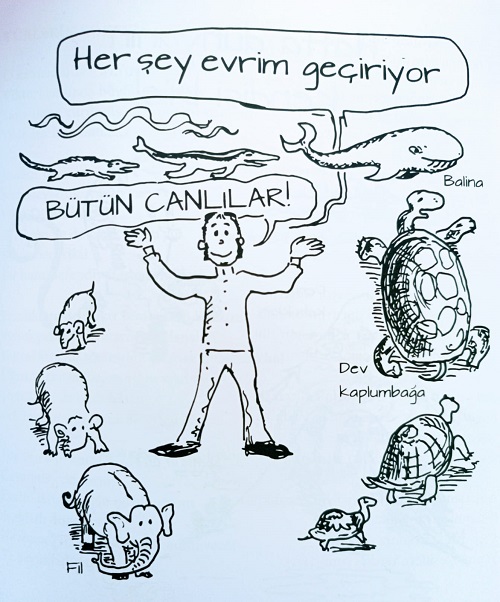 Her şey evrim geçiriyor
Balina
BÜTÜN CANLILAR!
Dev
kaplumbağa
Fil